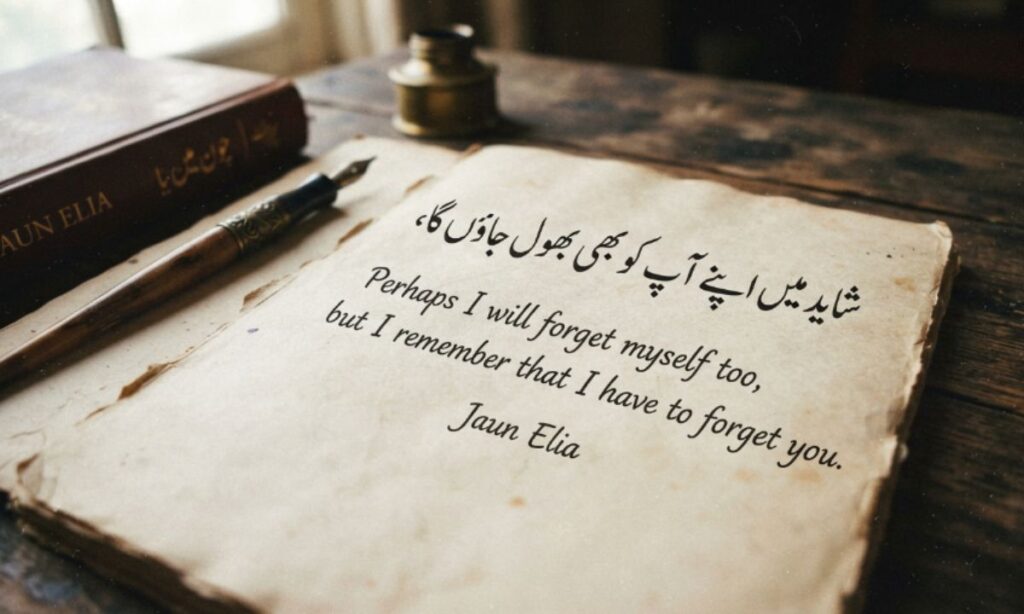 JAUN ELIA
شاید میں اپنے آپ کو بھی بھول جاؤں گا،
Perhaps I will forget myself too,
but I remember that I have to forget you.
Jaun Elia